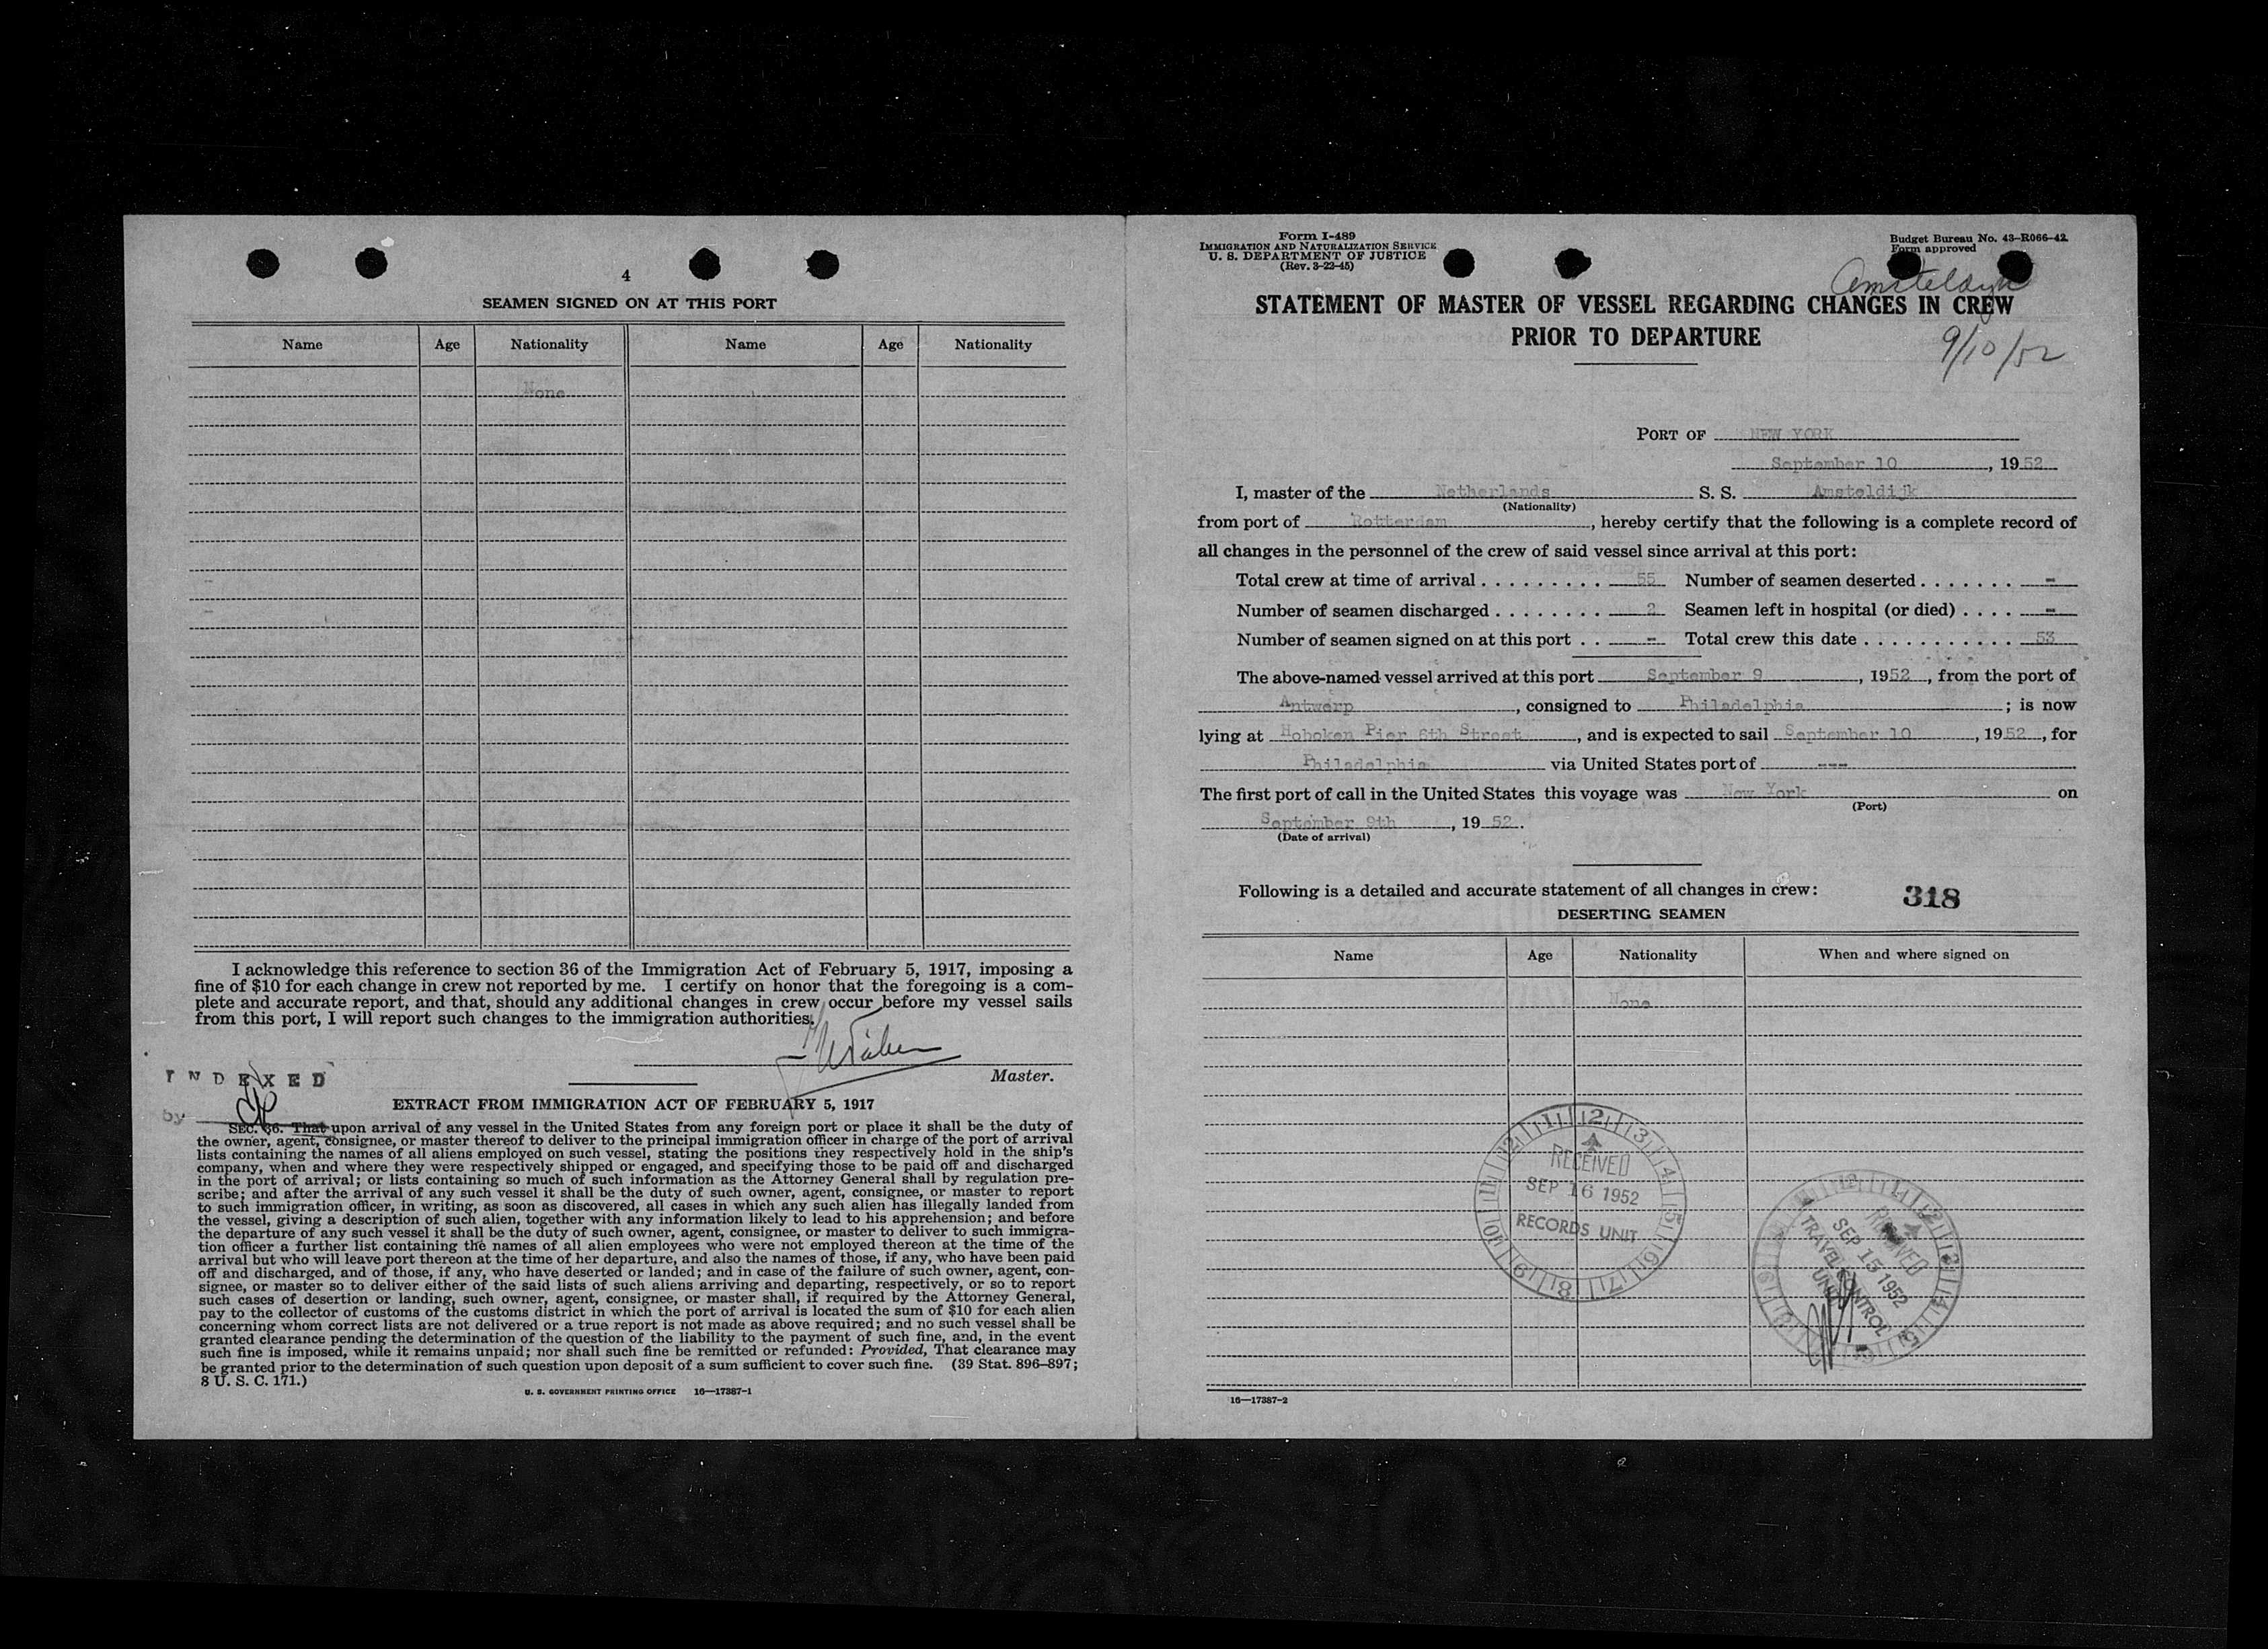 4
SEAMEN SIGNED ON AT THIS PORT
Name Age Nationality Name Age Nationality
None
I acknowledge this reference to section 36 of the Immigration Act of February 5, 1917, imposing a
fine of $10 for each change in crew not reported by me. I certify on honor that the foregoing is a com-
plete and accurate report, and that, should any additional changes in crew occur before my vessel sails
from this port, I will report such changes to the immigration authorities.
Master.
INDEXED
by
EXTRACT FROM IMMIGRATION ACT OF FEBRUARY 5, 1917
SEC. 36. That upon arrival of any vessel in the United States from any foreign port or place it shall be the duty of
the owner, agent, consignee, or master thereof to deliver to the principal immigration officer in charge of the port of arrival
lists containing the names of all aliens employed on such vessel, stating the positions they respectively hold in the ship's
company, when and where they were respectively shipped or engaged, and specifying those to be paid off and discharged
in the port of arrival; or lists containing so much of such information as the Attorney General shall by regulation pre-
scribe; and after the arrival of any such vessel it shall be the duty of such owner, agent, consignee, or master to report
to such immigration officer, in writing, as soon as discovered, all cases in which any such alien has illegally landed from
the vessel, giving a description of such alien, together with any information likely to lead to his apprehension; and before
the departure of any such vessel it shall be the duty of such owner, agent, consignee, or master to deliver to such immigra-
tion officer a further list containing the names of all alien employees who were not employed thereon at the time of the
arrival but who will leave port thereon at the time of her departure, and also the names of those, if any, who have been paid
off and discharged, and of those, if any, who have deserted or landed; and in case of the failure of such owner, agent, con-
signee, or master so to deliver either of the said lists of such aliens arriving and departing, respectively, or so to report
such cases of desertion or landing, such owner, agent, consignee, or master shall, if required by the Attorney General,
pay to the collector of customs of the customs district in which the port of arrival is located the sum of $10 for each alien
concerning whom correct lists are not delivered or a true report is not made as above required; and no such vessel shall be
granted clearance pending the determination of the question of the liability to the payment of such fine, and, in the event
such fine is imposed, while it remains unpaid; nor shall such fine be remitted or refunded: Provided, That clearance may
be granted prior to the determination of such question upon deposit of a sum sufficient to cover such fine. (39 Stat. 896–897;
8 U. S. C. 171.)
U. S. GOVERNMENT PRINTING OFFICE 16—17387-1
Form I-489
IMMIGRATION AND NATURALIZATION SERVICE
U. S. DEPARTMENT OF JUSTICE
(Rev. 3-22-45)
Budget Bureau No. 43-R066-42.
Form approved
Amsteldijk
STATEMENT OF MASTER OF VESSEL REGARDING CHANGES IN CREW
PRIOR TO DEPARTURE
9/10/52
PORT OF NEW YORK
September 10, 1952
I, master of the Netherlands S. S. Amsteldijk
(Nationality)
from port of Rotterdam, hereby certify that the following is a complete record of
all changes in the personnel of the crew of said vessel since arrival at this port:
Total crew at time of arrival . . . . . . . . . 55 Number of seamen deserted . . . . . . . -
Number of seamen discharged . . . . . . . . 2 Seamen left in hospital (or died) . . . . -
Number of seamen signed on at this port . . - Total crew this date . . . . . . . . . . . . 53
The above-named vessel arrived at this port September 9, 1952, from the port of
Antwerp, consigned to Philadelphia; is now
lying at Hoboken Pier 6th Street, and is expected to sail September 10, 1952, for
Philadelphia via United States port of ---
The first port of call in the United States this voyage was New York on
(Port)
September 9th, 1952.
(Date of arrival)
Following is a detailed and accurate statement of all changes in crew: 318
DESERTING SEAMEN
Name Age Nationality When and where signed on
None
RECEIVED
SEP 16 1952
RECORDS UNIT
RECEIVED
SEP 15 1952
TRAVEL CONTROL
UNIT
16—17387-2